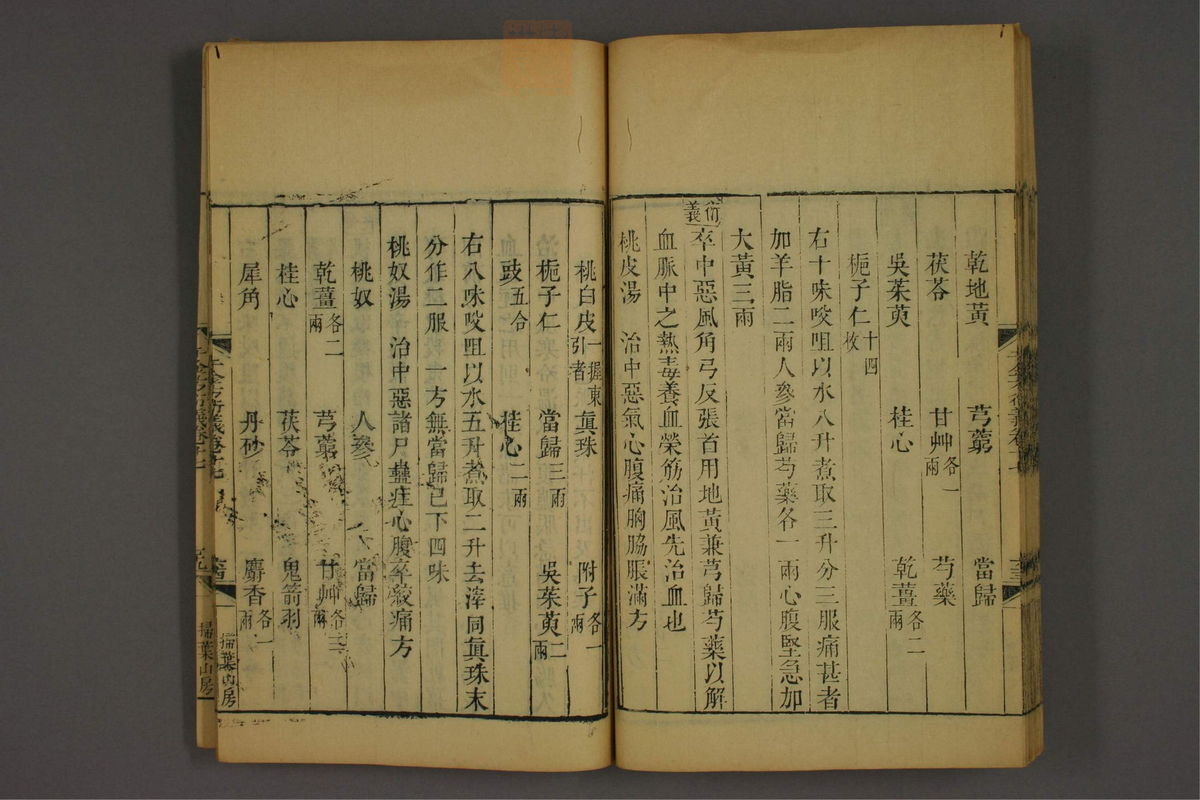 乾地黃　芎藭　當歸
茯苓　甘艸各一兩　芍藥
吳茱萸　桂心　乾薑各二兩
梔子仁十四枚
右十味㕮咀以水八升煮取三升分三服痛甚者
加羊脂二兩人參當歸芍藥各一兩心腹堅急加
大黃三兩
衍義
卒中惡風角弓反張首用地黃兼芎歸芍藥以解
血脈中之熱毒養血榮筋治風先治血也
桃皮湯　治中惡氣心腹痛胸脇脹滿方
桃白皮一握東引者　眞珠　附子各一兩
梔子仁　當歸三兩　吳茱萸二兩
豉五合　桂心二兩
右八味㕮咀以水五升煮取二升去滓同眞珠末
分作二服一方無當歸已下四味
桃奴湯　治中惡諸尸蠱疰心腹卒絞痛方
桃奴　人參　當歸
乾薑各二兩　芎藭　甘艸各三兩
桂心　茯苓　鬼箭羽
犀角　丹砂　麝香各一兩
掃葉山房
掃葉山房